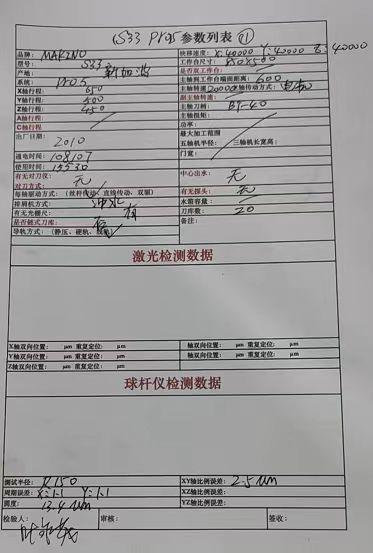 S33 Pro5 参数列表 (1)
品牌: MAKINO 快移速度: X:40000 Y:40000 Z:40000
型号: S33 工作台尺寸:
产地: 新加坡 是否双工作台:
系统: Pro5 主轴到工作台端面距离: 600
X轴行程: 650 主轴转速 20000 主轴传动方式:
Y轴行程: 500 副主轴转速:
Z轴行程: 450 主轴刀柄: BT-40
A轴行程: 主轴扭矩:
C轴行程 功率:
出厂日期: 2010 最大加工范围
五轴机半径: 三轴机长宽高:
通电时间: 108107 门宽:
使用时间: 15530
有无对刀仪: 无 中心出水: 无
对刀方式:
每轴驱动方式: (丝杆传动、直线传动、双驱) 有无探头: 无
排屑机方式: 冲水 水箱容量:
有无光栅尺: 有 刀库数: 20
是否链式刀库: 备注:
导轨方式: (静压、硬轨、
激光检测数据
X轴双向位置: μm 重复定位: μm 轴双向位置: μm 重复定位: μm
Y轴双向位置: μm 重复定位: μm 轴双向位置: μm 重复定位: μm
Z轴双向位置: μm 重复定位: μm
球杆仪检测数据
测试半径: R150 XY轴比例误差: 2.5μm
周期误差: X:1.1 Y:1.1 XZ轴比例误差:
圆度: 13.4μm YZ轴比例误差:
检验人: 审核: 签收: